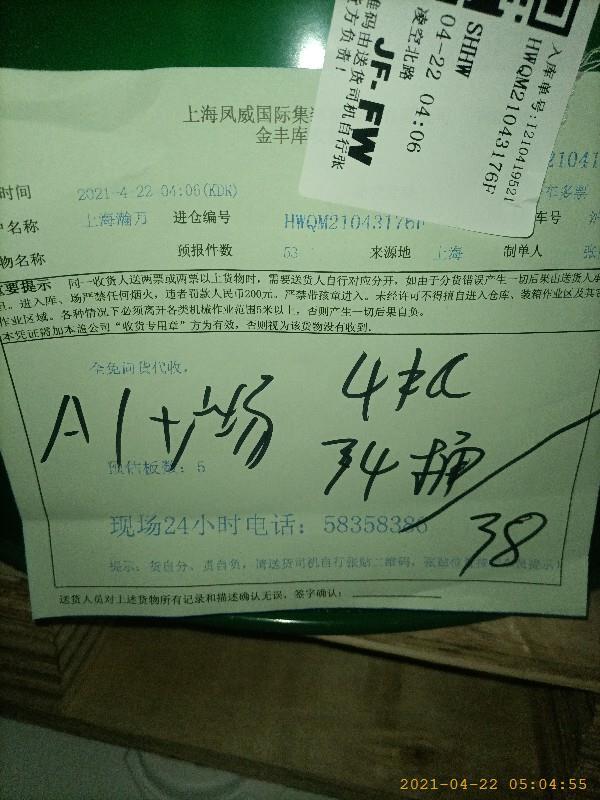 入库单号:1210419521
HWQM21043176F
SHHW
04-22 04:06
凌空北路
JF-FW
维码由送货司机自行张
方负责！
上海凤威国际集
金丰库
2104
时间 2021-4-22 04:06(KDR) 车多票
名称 上海瀚月 进仓编号 HWQM21043176F 车号
物名称 预报件数 53 来源地 上海 制单人 张
重要提示 同一收货人送两票或两票以上货物时，需要送货人自行对应分开，如由于分货错误产生一切后果由送货人
。进入库、场严禁任何烟火，违者罚款人民币200元。严禁带孩童进入。未经许可不得擅自进入仓库、装箱作业区及其
作业区域。各种情况下必须离开各类机械作业范围5米以上，否则产生一切后果自负。
本凭证须加本溢公司“收货专用章”方为有效，否则视为该货物没有收到.
4板
A1+场
34桶
预估板数：5
现场24小时电话：58358386
38
提示：货自分、责自负，请送货司机自行张贴二维码，
送货人员对上述货物所有记录和描述确认无误，签字确认：